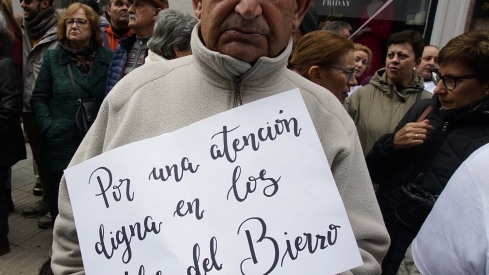 FRIDAY
Por una atención
digna en los
del Bierzo